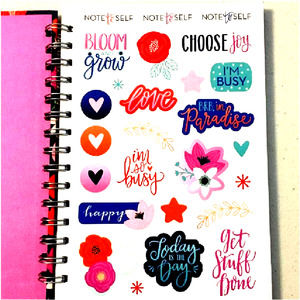 NOTE to SELF NOTE to SELF NOTE to SELF
BLOOM
and
grow
CHOOSE joy
I'M
BUSY
love
BRB, in
Paradise
i'm
so
busy
happy
Today
IS THE
Day
Get
Stuff
Done